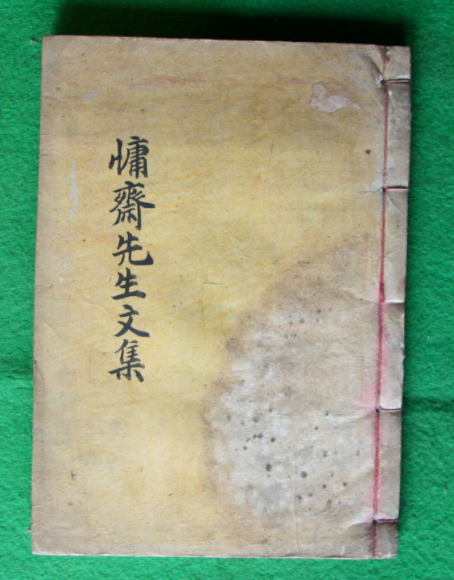 慵齋先生文集